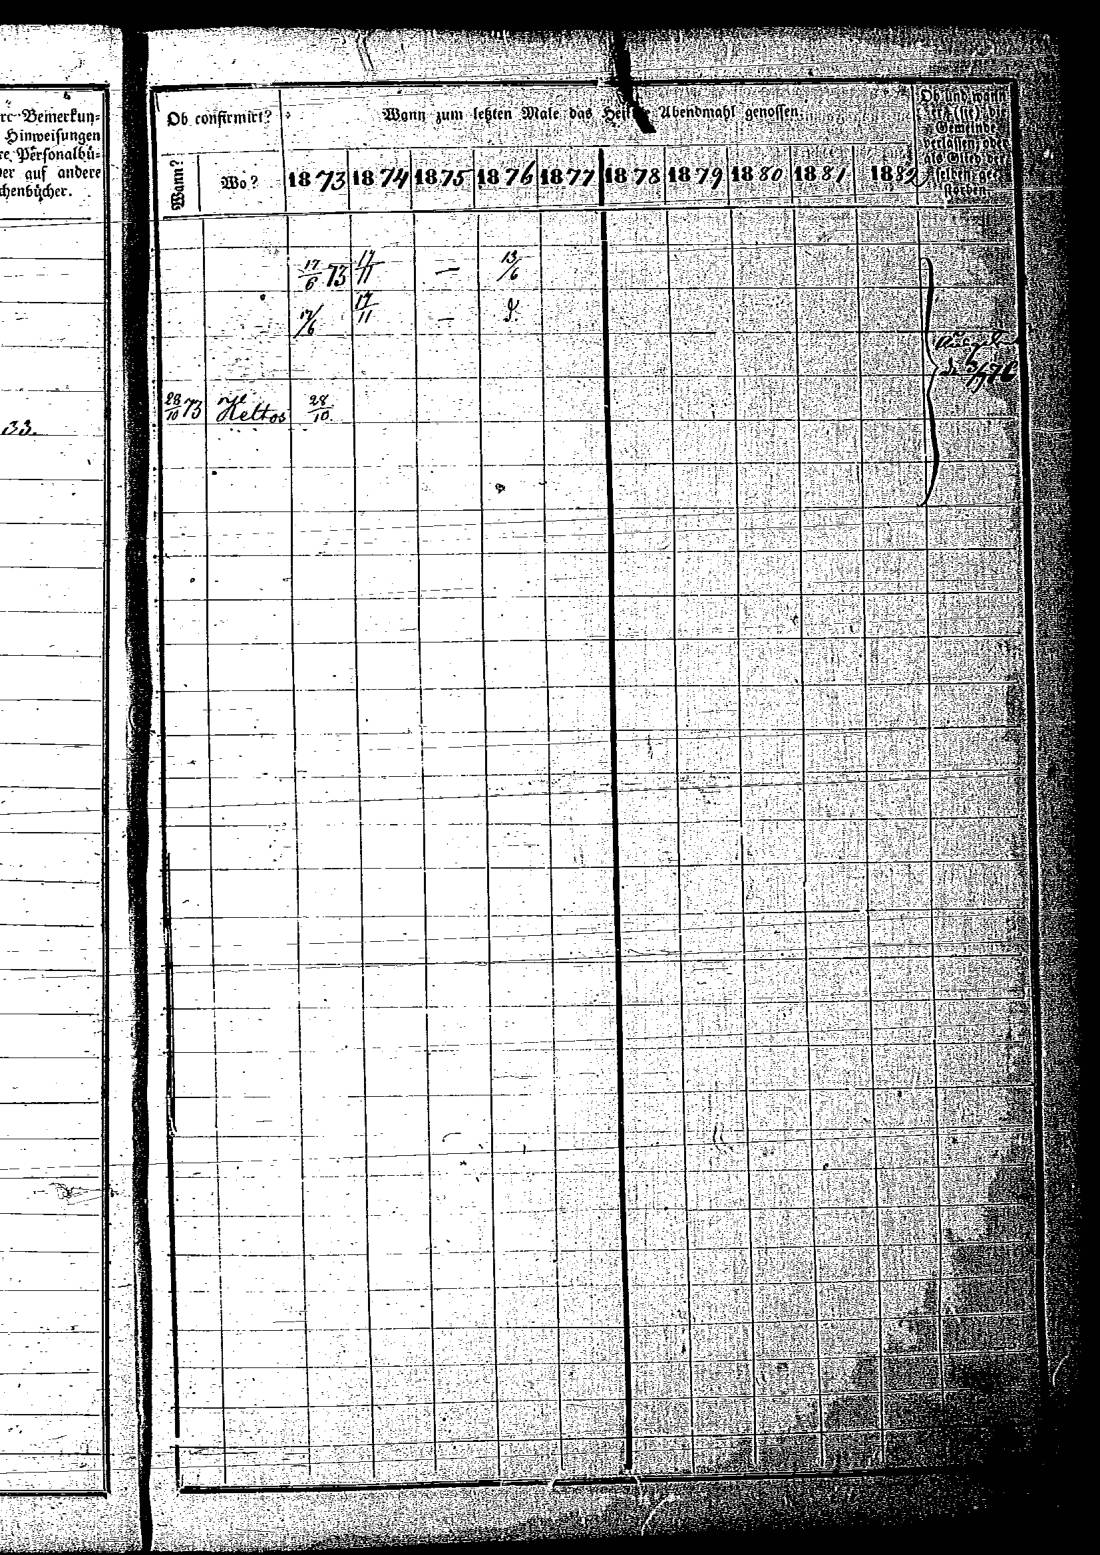 Bemerkun-
Hinweisungen
Personalbü-
auf andere
chenbücher.
33.
Ob confirmirt?
Wann zum letzten Male das Heil. Abendmahl genossen.
Ob und wann
er (sie) die
Gemeinde
verlassen; oder
als Glied der-
selben ge-
storben.
Wann?
Wo?
1873 1874 1875 1876 1877 1878 1879 1880 1881 1882
17/6 73 17/11 — 13/6
17/6 17/11 —
28/10 73 28/10